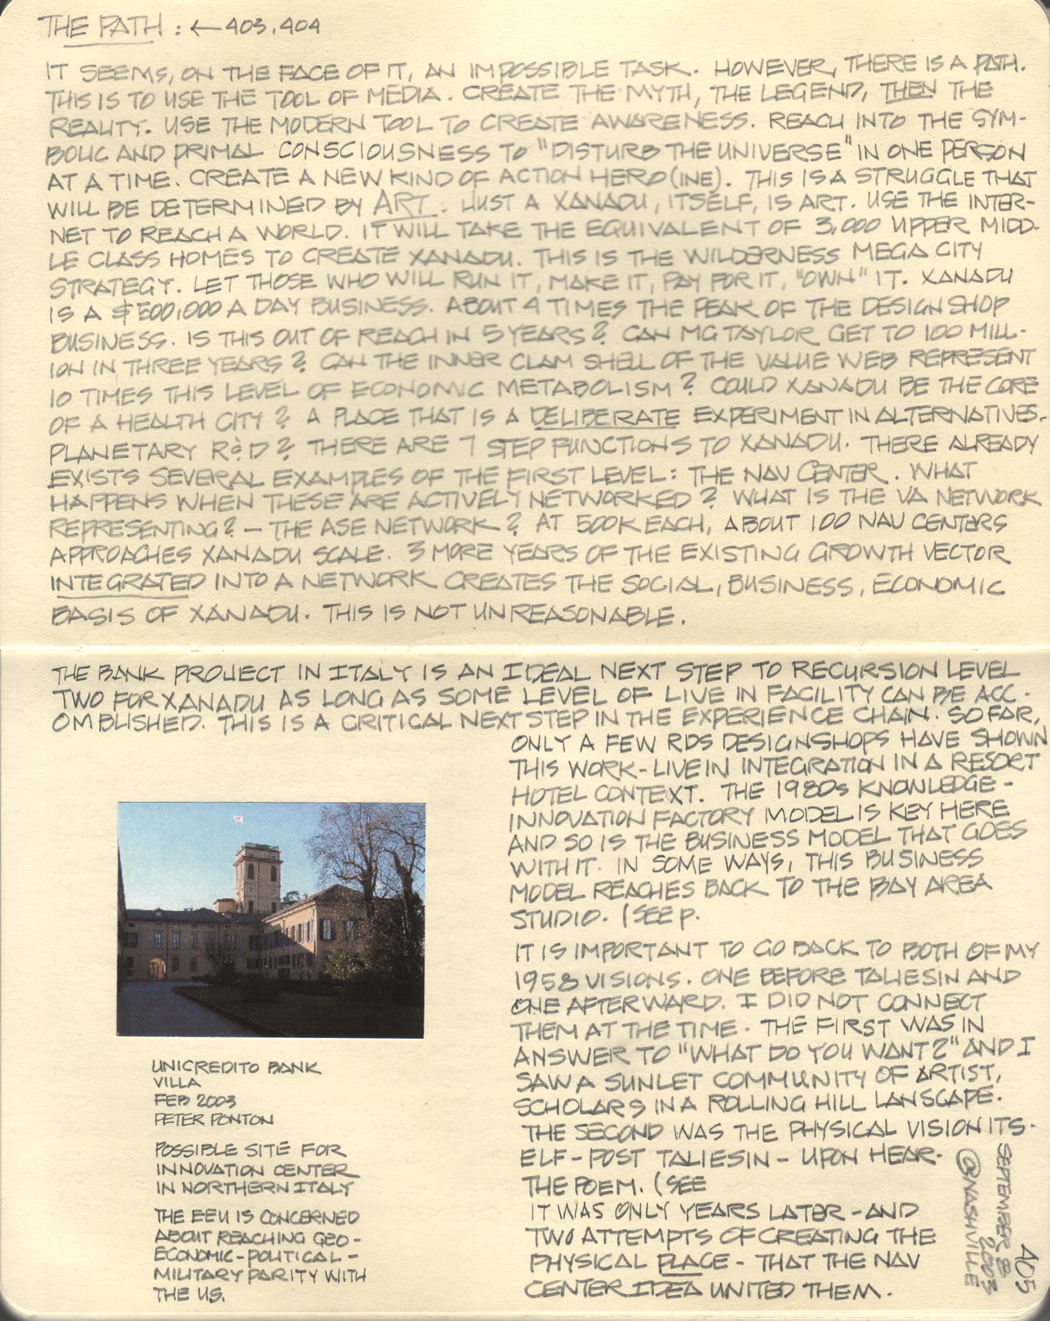 THE PATH : ← 403, 404
IT SEEMS, ON THE FACE OF IT, AN IMPOSSIBLE TASK. HOWEVER, THERE IS A PATH.
THIS IS TO USE THE TOOL OF MEDIA. CREATE THE MYTH, THE LEGEND, THEN THE
REALITY. USE THE MODERN TOOL TO CREATE AWARENESS. REACH INTO THE SYM-
BOLIC AND PRIMAL CONSCIOUSNESS TO "DISTURB THE UNIVERSE" IN ONE PERSON
AT A TIME. CREATE A NEW KIND OF ACTION HERO(INE). THIS IS A STRUGGLE THAT
WILL BE DETERMINED BY ART. JUST A XANADU, ITSELF, IS ART. USE THE INTER-
NET TO REACH A WORLD. IT WILL TAKE THE EQUIVALENT OF 3,000 UPPER MIDD-
LE CLASS HOMES TO CREATE XANADU. THIS IS THE WILDERNESS MEGA CITY
STRATEGY. LET THOSE WHO WILL RUN IT, MAKE IT, PAY FOR IT, "OWN" IT. XANADU
IS A $500,000 A DAY BUSINESS. ABOUT 4 TIMES THE PEAK OF THE DESIGN SHOP
BUSINESS. IS THIS OUT OF REACH IN 5 YEARS? CAN MG TAYLOR GET TO 100 MILL-
ION IN THREE YEARS? CAN THE INNER CLAM SHELL OF THE VALUE WEB REPRESENT
10 TIMES THIS LEVEL OF ECONOMIC METABOLISM? COULD XANADU BE THE CORE
OF A HEALTH CITY? A PLACE THAT IS A DELIBERATE EXPERIMENT IN ALTERNATIVES.
PLANETARY R&D? THERE ARE 7 STEP FUNCTIONS TO XANADU. THERE ALREADY
EXISTS SEVERAL EXAMPLES OF THE FIRST LEVEL: THE NAV CENTER. WHAT
HAPPENS WHEN THESE ARE ACTIVELY NETWORKED? WHAT IS THE VA NETWORK
REPRESENTING? - THE ASE NETWORK? AT 500K EACH, ABOUT 100 NAV CENTERS
APPROACHES XANADU SCALE. 3 MORE YEARS OF THE EXISTING GROWTH VECTOR
INTEGRATED INTO A NETWORK CREATES THE SOCIAL, BUSINESS, ECONOMIC
BASIS OF XANADU. THIS IS NOT UNREASONABLE.
THE BANK PROJECT IN ITALY IS AN IDEAL NEXT STEP TO RECURSION LEVEL
TWO FOR XANADU AS LONG AS SOME LEVEL OF LIVE IN FACILITY CAN BE ACC-
OMBLISHED. THIS IS A CRITICAL NEXT STEP IN THE EXPERIENCE CHAIN. SO FAR,
ONLY A FEW RDS DESIGNSHOPS HAVE SHOWN
THIS WORK-LIVE IN INTEGRATION IN A RESORT
HOTEL CONTEXT. THE 1980s KNOWLEDGE-
INNOVATION FACTORY MODEL IS KEY HERE
AND SO IS THE BUSINESS MODEL THAT GOES
WITH IT. IN SOME WAYS, THIS BUSINESS
MODEL REACHES BACK TO THE BAY AREA
STUDIO. (SEE P.
IT IS IMPORTANT TO GO BACK TO BOTH OF MY
1958 VISIONS. ONE BEFORE TALIESIN AND
ONE AFTERWARD. I DID NOT CONNECT
THEM AT THE TIME. THE FIRST WAS IN
ANSWER TO "WHAT DO YOU WANT?" AND I
SAW A SUNLET COMMUNITY OF ARTIST,
SCHOLARS IN A ROLLING HILL LANSCAPE.
THE SECOND WAS THE PHYSICAL VISION ITS-
ELF - POST TALIESIN - UPON HEAR-
THE POEM. (SEE
IT WAS ONLY YEARS LATER - AND
TWO ATTEMPTS OF CREATING THE
PHYSICAL PLACE - THAT THE NAV
CENTER IDEA UNITED THEM.
UNICREDITO BANK
VILLA
FEB 2003
PETER PONTON
POSSIBLE SITE FOR
INNOVATION CENTER
IN NORTHERN ITALY
THE EEU IS CONCERNED
ABOUT REACHING GEO-
ECONOMIC-POLITICAL-
MILITARY PARITY WITH
THE US.
405
SEPTEMBER 8
2003
@NASHVILLE